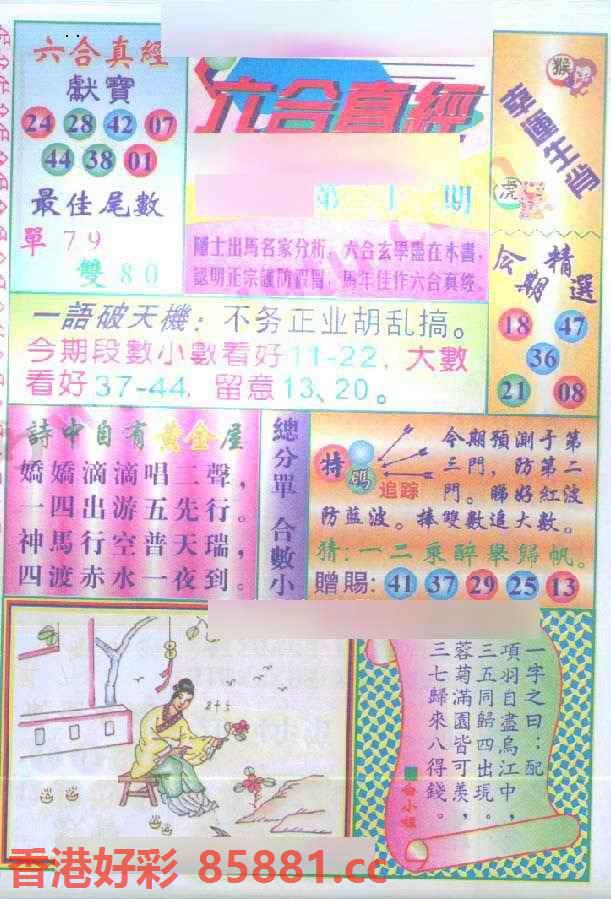 六合真經
獻寶
24 28 42 07
44 38 01
最佳尾數
單79
雙80
六合真經
第 期
隱士出馬名家分析，六合玄學盡在本書，
認明正宗謹防假冒，馬年佳作六合真經。
猴
幸運生肖
虎
今期精選
18 47
36
21 08
一語破天機：不务正业胡乱搞。
今期段數小數看好11-22，大數
看好37-44，留意13、20。
詩中自有黄金屋
嬌嬌滴滴唱二聲，
一四出游五先行。
神馬行空普天瑞，
四渡赤水一夜到。
總分單 合數小
特碼追踪
今期預測于第
三門，防第二
門。睇好紅波
防藍波。捧雙數追大數。
猜：一二乘醉舉歸帆。
贈賜：41 37 29 25 13
一字之曰：配
項羽自盡烏江中，
三五同歸四出現。
蓉菊滿園皆可羨，
三七歸來八得錢。
香港好彩 85881.cc